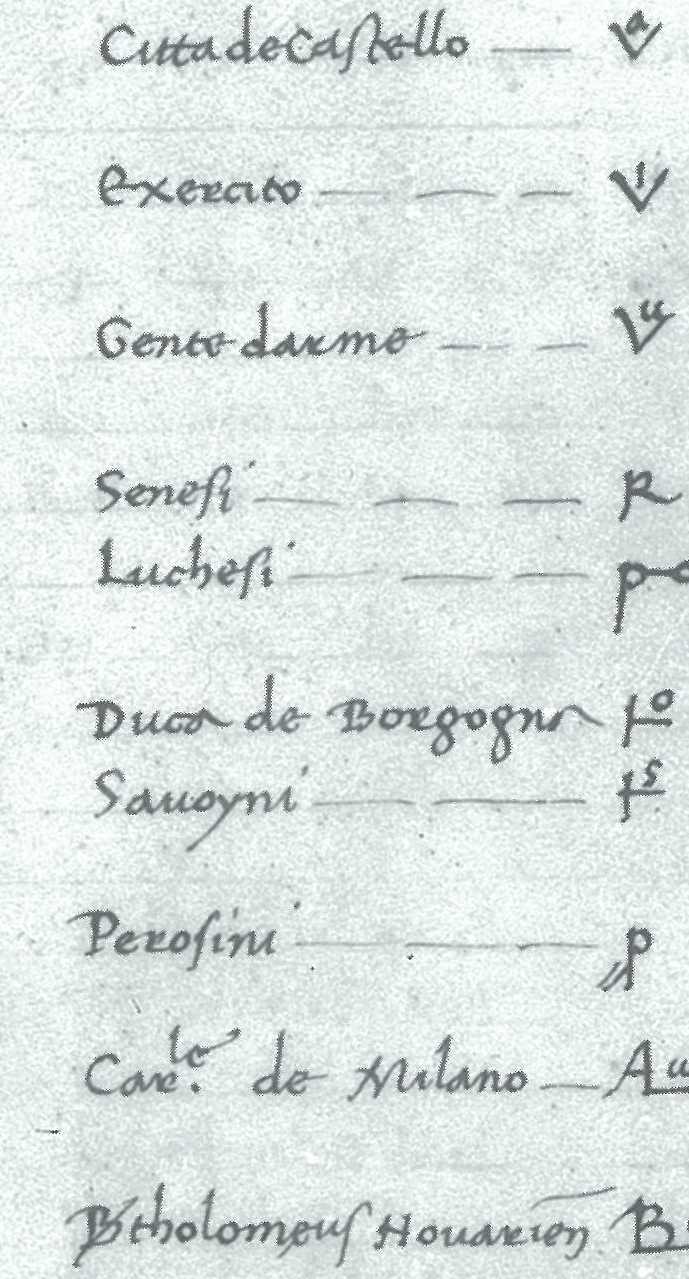 Citta de Castello — V^a
Exercito — — — V^ı
Gente darme — — V^u
Senesi — — — R
Luchesi — — — p
Duca de Borgogna t^o
Sauoyni — — t^s
Perosini — — p
Car.^le de Milano — A^u
Btholomeus Nouarien B